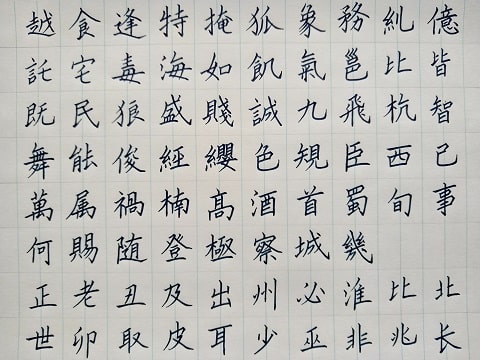 越食逢特掩狐象務糺億
託宅毒海如飢氣邕比皆
既民狼盛賤誠九飛杭智
舞能俊經纓色規臣西己
萬属禍楠高酒首蜀旬事
何賜随登極察城幾
正老丑及出州必淮比北
世卯取皮耳少巫非兆长